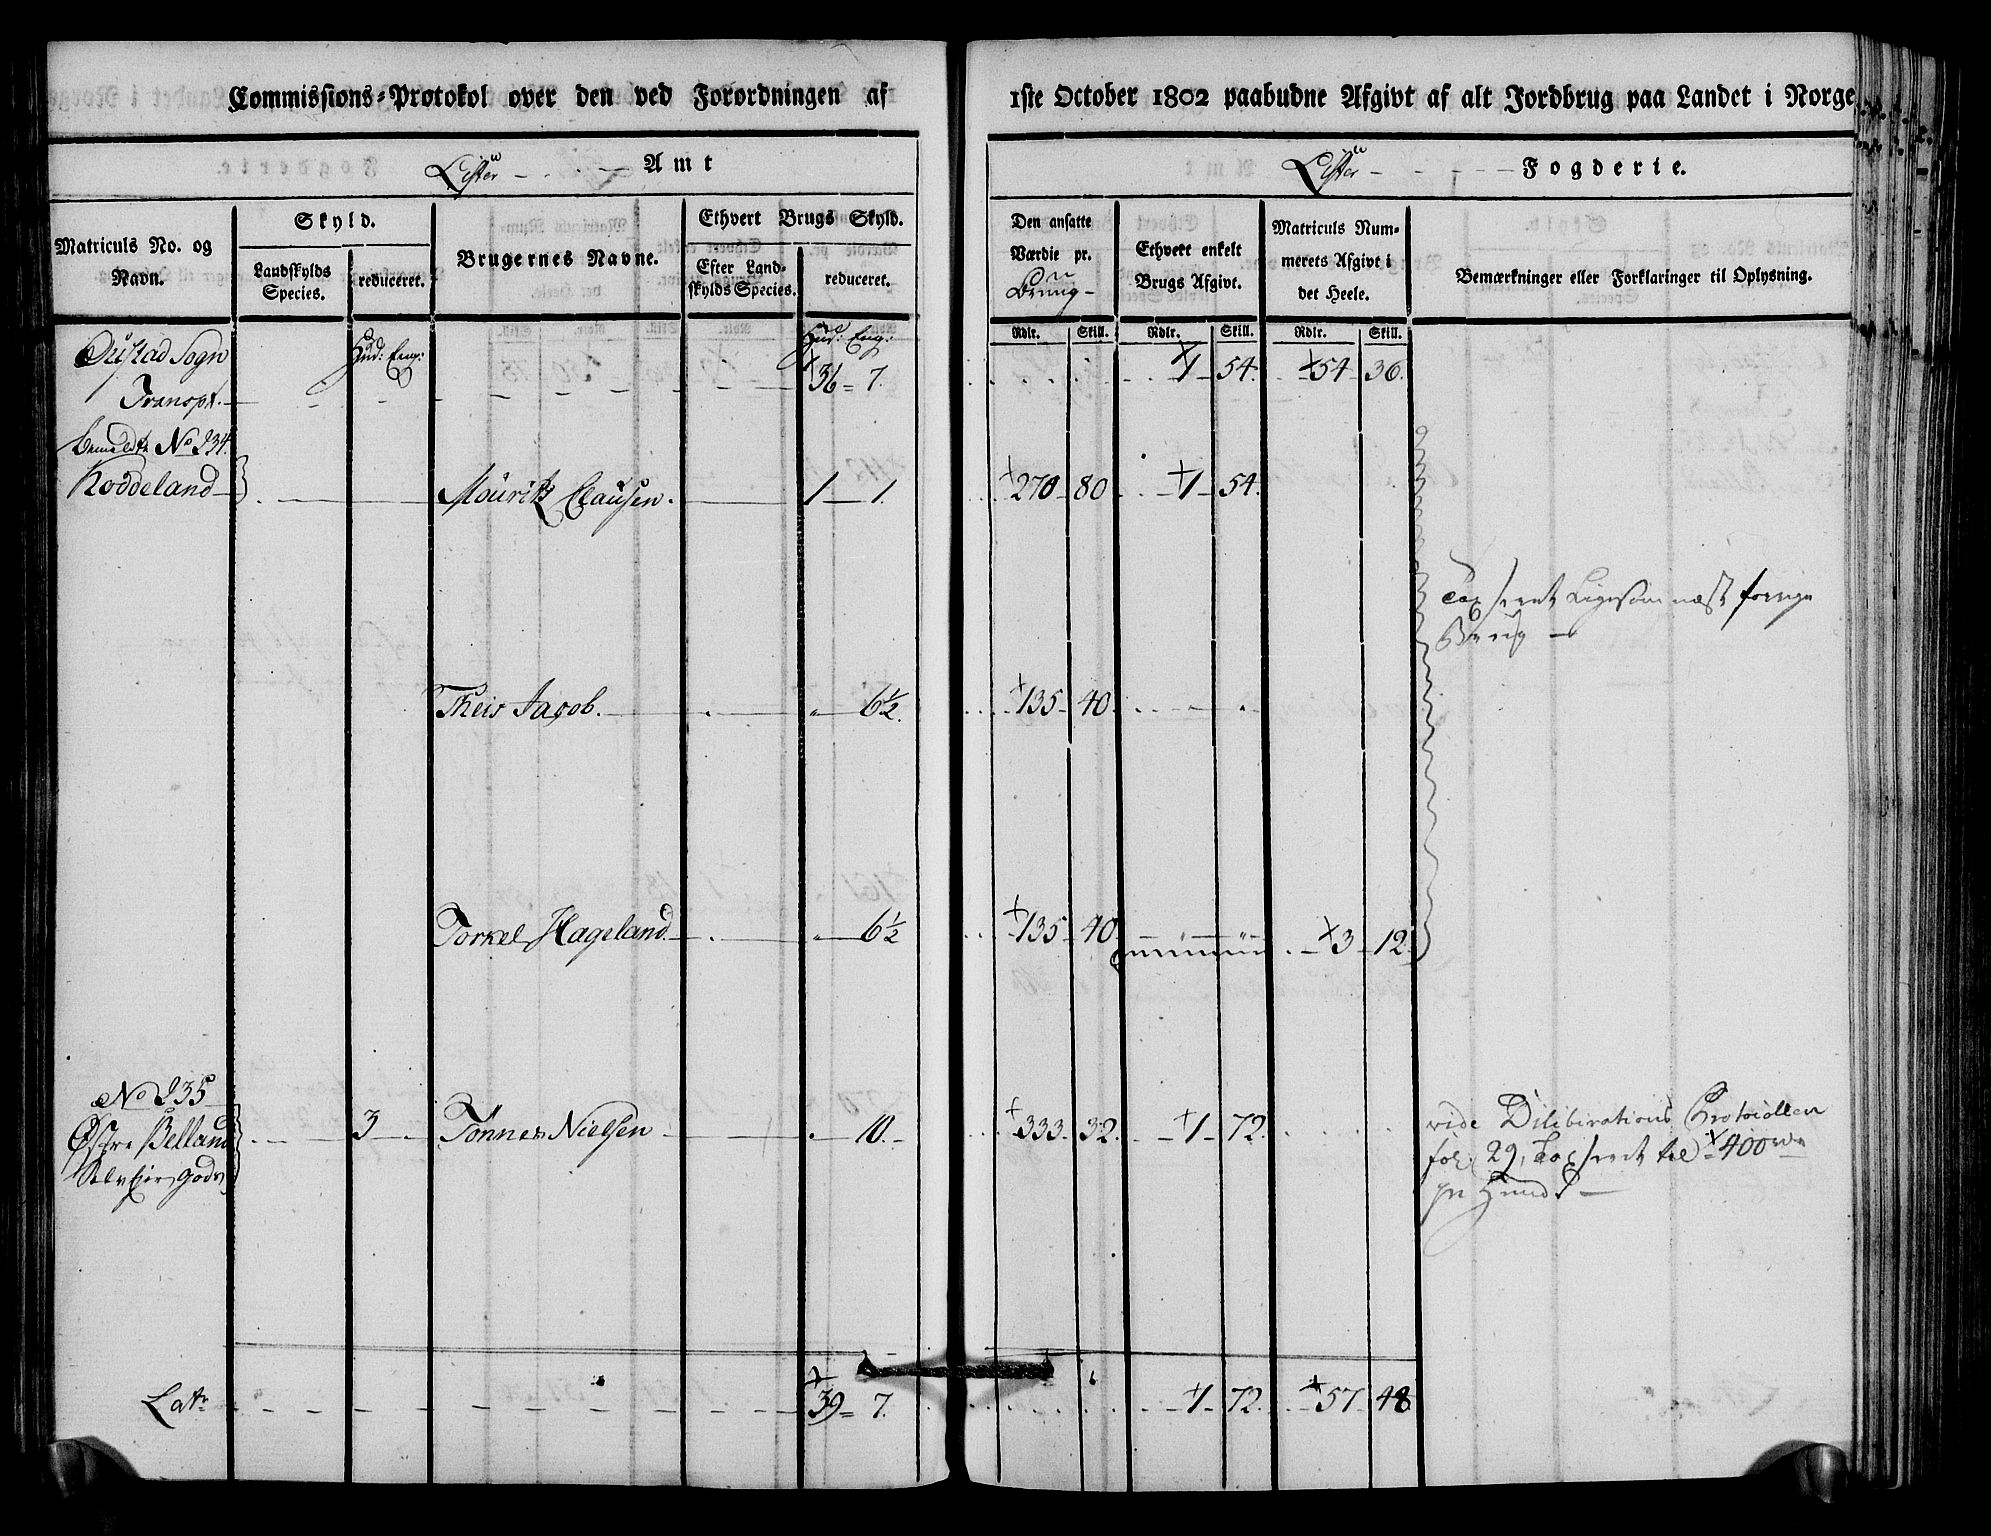 Commissions-Protokol over den ved Forordningen af 1ste October 1802 paabudne Afgivt af alt Jordbrug paa Landet i Norge
Lister Amt
Lister Fogderie.
Matriculs No. og Navn.
Skyld.
Landskylds Species.
reduceret.
Brugernes Navne.
Ethvert Brugs Skyld.
Efter Landskylds Species.
reduceret.
Den ansatte Værdie pr. Bruug
Ethvert enkelt Brugs Afgivt.
Matriculs Nummerets Afgivt i det Heele.
Bemærkninger eller Forklaringer til Oplysning.
Rdlr. Skill. Rdlr. Skill. Rdlr. Skill.
Sogn Hud: Eng: Hud: Eng:
Transpt. 36 7. 1 54. 54 36.
bemeldte No 934.
Roddeland Mouritz Clausen. 1 1. 270 80 1 54.
Tax seret Ligesom næst forrige
Brug
Theis Jacob. " 6½. 135 40.
Torkel Hageland. " 6½ 135 40. 3 12.
No 935
Østre Belland 3 Tønnes Nielsen 10. 333 32. 1 72.
Selvejer gods
vide Deliberations Protocollen
fol. 29, Taxseret til 400 rdr
pr Huud
Latr 39 7. 1 72. 57 48